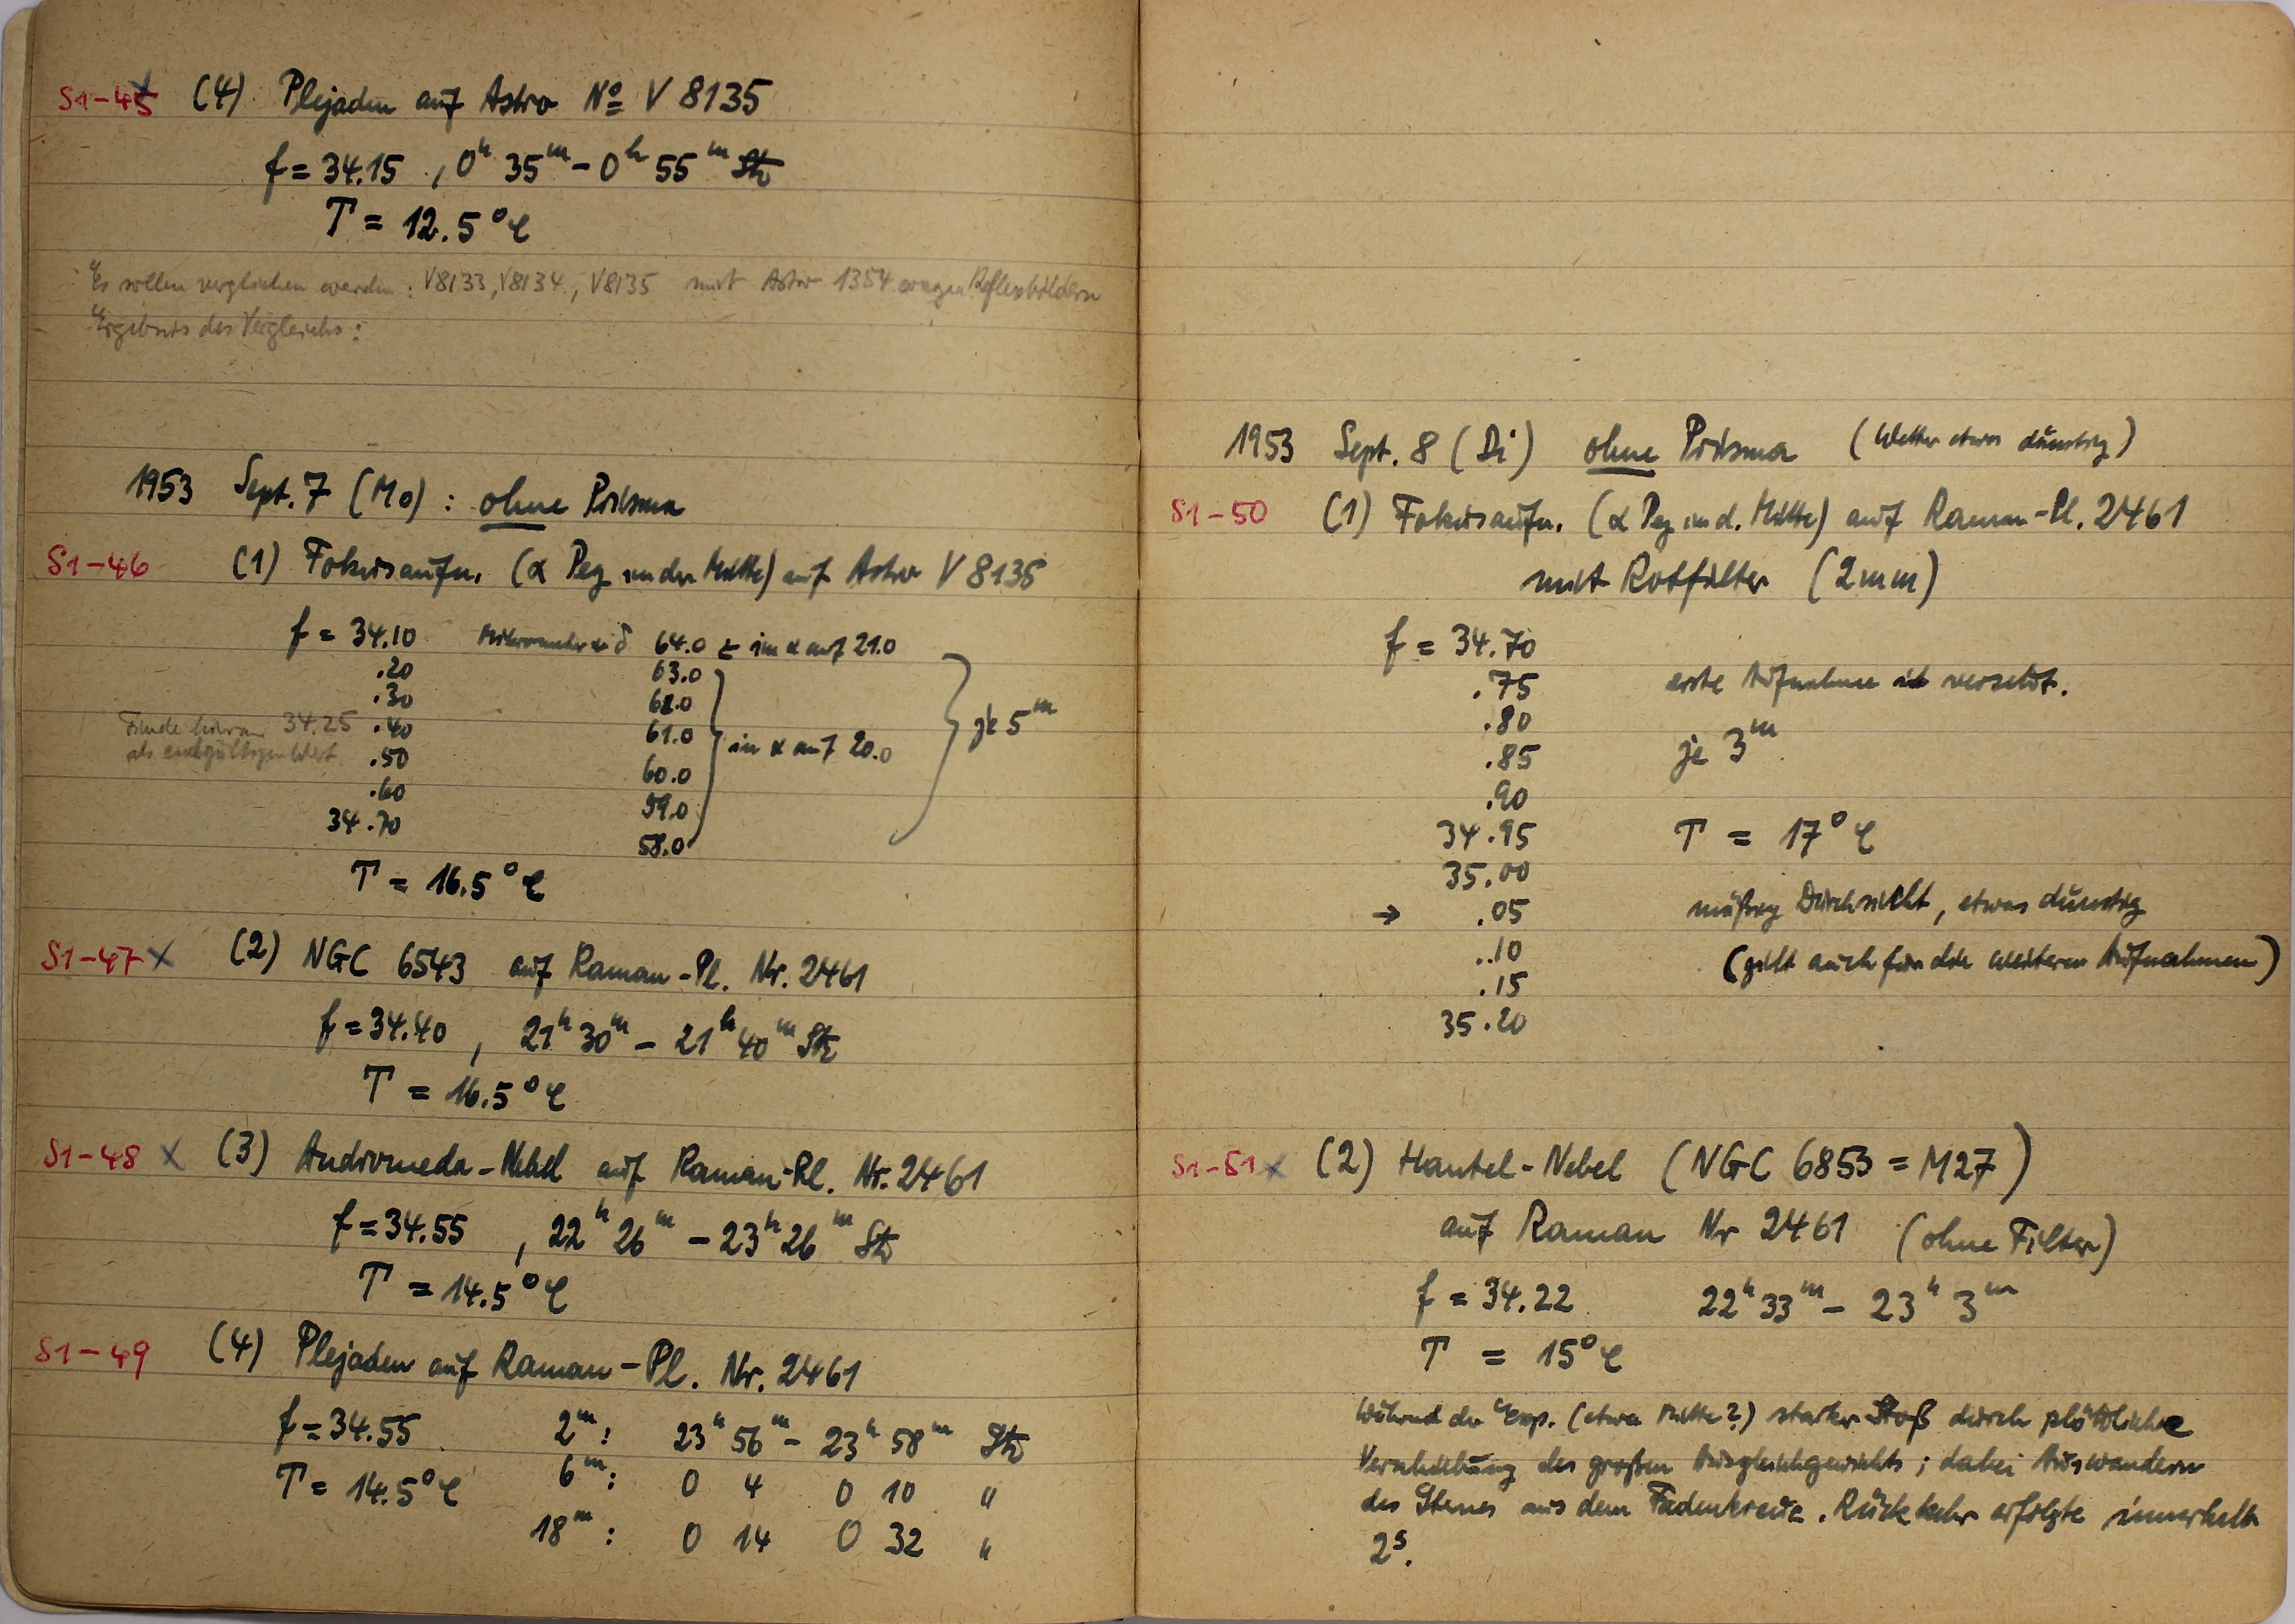 S1-45 (4) Plejaden auf Astro Nº V 8135
f = 34.15 , 0ʰ 35ᵐ - 0ʰ 55ᵐ Stz
T = 12.5°C
Es sollen verglichen werden: V8133, V8134, V8135 mit Astro 1354 wegen Reflexbildern
Ergebnis des Vergleichs:
1953 Sept. 7 (Mo) : ohne Prisma
S1-46 (1) Fokusaufn. (α Peg in der Mitte) auf Astro V 8135
f = 34.10 Mikrometer in δ 64.0 ± im α auf 21.0
.20 63.0
.30 62.0
Finde hieraus 34.25 .40 61.0 in α auf 20.0 je 5ᵐ
als endgültigen Wert .50 60.0
.60 59.0
34.70 58.0
T = 16.5°C
S1-47 x (2) NGC 6543 auf Raman-Pl. Nr. 2461
f = 34.40 , 21ʰ 30ᵐ - 21ʰ 40ᵐ Stz
T = 16.5°C
S1-48 x (3) Andromeda-Nebel auf Raman-Pl. Nr. 2461
f = 34.55 , 22ʰ 26ᵐ - 23ʰ 26ᵐ Stz
T = 14.5°C
S1-49 (4) Plejaden auf Raman-Pl. Nr. 2461
f = 34.55 2ᵐ: 23ʰ 56ᵐ - 23ʰ 58ᵐ Stz
T = 14.5°C 6ᵐ: 0 4 0 10 "
18ᵐ: 0 14 0 32 "
1953 Sept. 8 (Di) ohne Prisma (Wetter etwas dunstig)
S1-50 (1) Fokusaufn. (α Peg in d. Mitte) auf Raman-Pl. 2461
mit Rotfilter (2mm)
f = 34.70
.75 erste Aufnahme ist versetzt.
.80
.85 je 3ᵐ
.90
34.95 T = 17°C
35.00
→ .05 mäßige Durchsicht, etwas dunstig
.10 (gilt auch für die weiteren Aufnahmen)
.15
35.20
S1-51 x (2) Hantel-Nebel (NGC 6853 = M27)
auf Raman Nr 2461 (ohne Filter)
f = 34.22 22ʰ 33ᵐ - 23ʰ 3ᵐ
T = 15°C
Während der Exp. (etwa Mitte?) starker Stoß durch plötzliche
Verschiebung des großen Ausgleichgewichts; dabei Auswandern
des Sternes aus dem Fadenkreuz. Rückkehr erfolgte innerhalb
2ˢ.